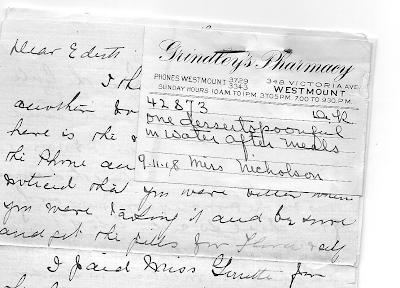 Dear Edith
I
another
here is the
the Phone
noticed that you were better when
you were taking it and be sure
and get the pills for
I paid Miss for
Grindley's Pharmacy
PHONES WESTMOUNT 3729 3343
348 VICTORIA AVE.
WESTMOUNT
SUNDAY HOURS 10 AM TO 1 PM. 3 TO 5 PM. 7.00 TO 9.30 PM.
42873
one dessertspoonful
in water after meals
9.11.18 Miss Nicholson